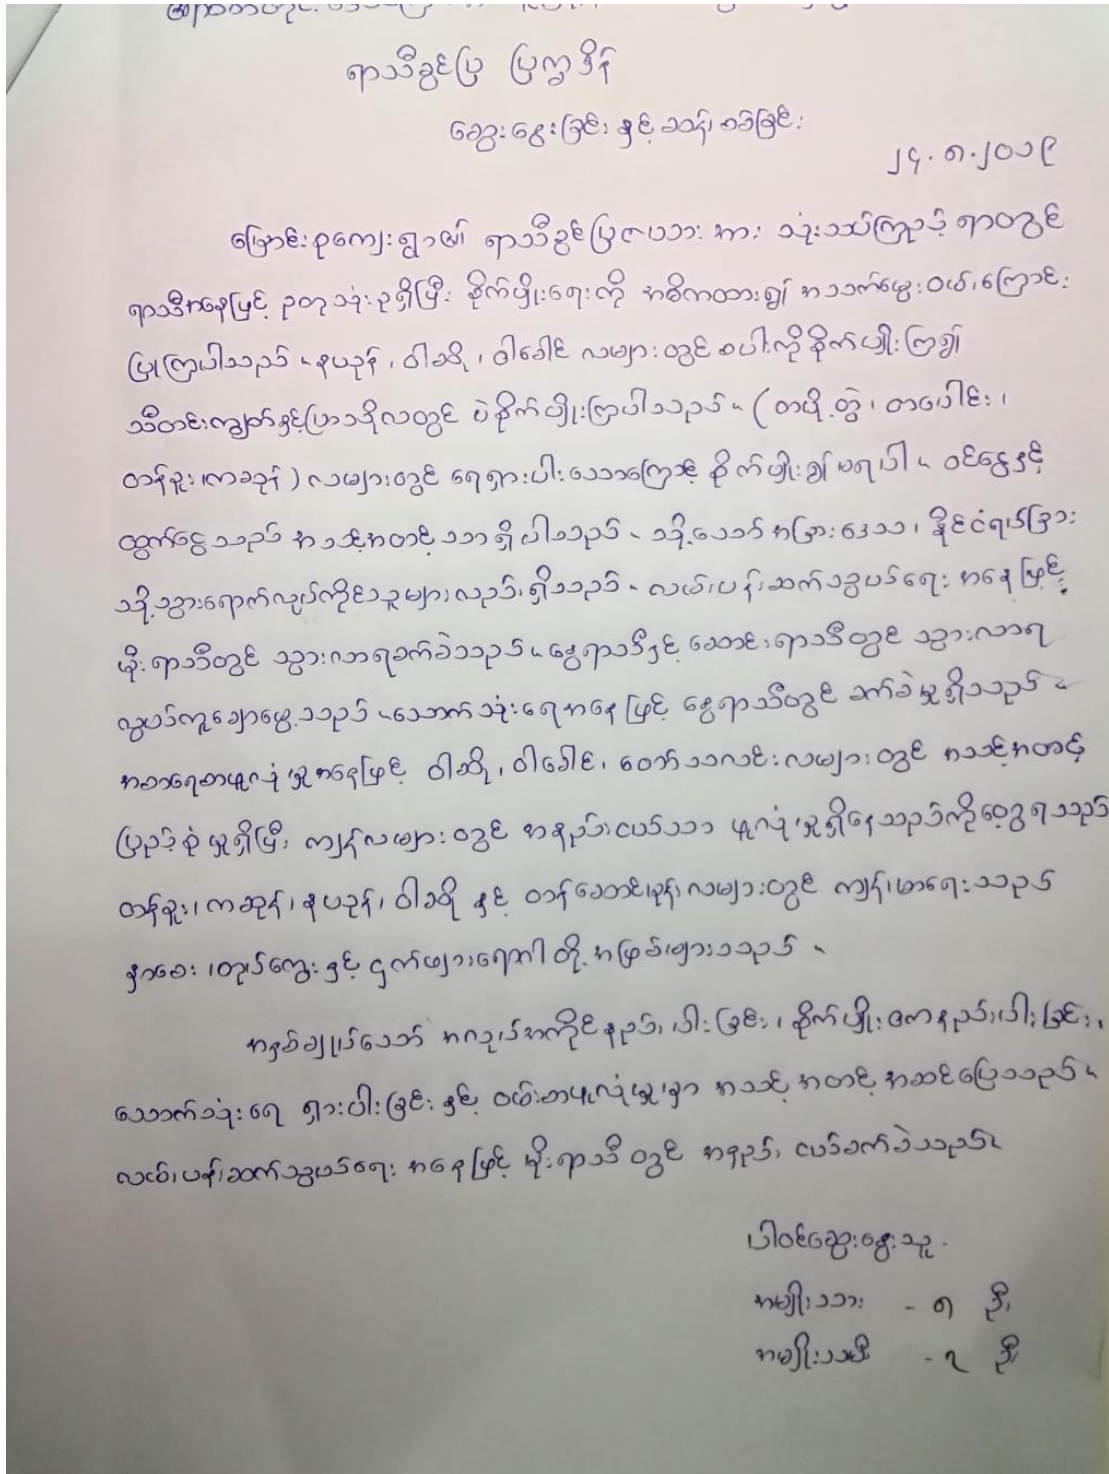 ရာသီခွင်ပြ ပြက္ခဒိန်
ဆွေးနွေးခြင်း နှင့် ခဝန်းစစ်ခြင်း
၂၄.၈.၂၀၁၉
မြောင်းစုကျေးရွာ၏ ရာသီခွင်ပြဇယား အား သုံးသပ်ကြည့် ရာတွင်
ရာသီအနေဖြင့် ဥတုသုံးဥရှိပြီး စိုက်ပျိုးရေးကို အဓိကထား၍ အသက်မွေးဝမ်းကြောင်း
ပြုကြပါသည်။ နယုန်၊ ဝါဆို၊ ဝါခေါင် လများတွင် စပါးကိုစိုက်ပျိုးကြ၍
သီတင်းကျွတ်နှင့်ပြာသိုလတွင် ပဲစိုက်ပျိုးကြပါသည်။ (တပို့တွဲ၊ တပေါင်း၊
တန်ခူး၊ကဆုန်) လများတွင် ရေရှားပါးသောကြောင့် စိုက်ပျိုး၍ မရပါ။ ဝင်ငွေနှင့်
ထွက်ငွေသည် အသင့်အတင့်သာရှိပါသည်။ သို့သော် အခြားဒေသ၊ နိုင်ငံရပ်ခြား
သို့သွားရောက်လုပ်ကိုင်သူများလည်းရှိသည်။ လမ်းပန်းဆက်သွယ်ရေး အနေဖြင့်
မိုးရာသီတွင် သွားလာရခက်ခဲသည်။ နွေရာသီနှင့် ဆောင်းရာသီတွင် သွားလာရ
လွယ်ကူချောမွေ့သည်။ သောက်သုံးရေအနေဖြင့် နွေရာသီတွင် ခက်ခဲမှုရှိသည်။
အစာရေစာဖူလုံမှုအနေဖြင့် ဝါဆို၊ ဝါခေါင်၊ တော်သလင်းလများတွင် အသင့်အတင့်
ပြည့်စုံမှုရှိပြီး ကျန်လများတွင် အနည်းငယ်သာ ဖူလုံမှုရှိနေသည်ကိုတွေ့ရသည်
တန်ခူး၊ကဆုန်၊နယုန်၊ဝါဆို နှင့် တန်ဆောင်မုန်းလများတွင် ကျန်းမာရေးသည်
နှာစေး၊တုပ်ကွေးနှင့် ငှက်ဖျားရောဂါတို့အဖြစ်များသည်။
အနှစ်ချုပ်သော် အလုပ်အကိုင်နည်းပါးခြင်း၊ စိုက်ပျိုးဧကနည်းပါးခြင်း၊
သောက်သုံးရေ ရှားပါးခြင်းနှင့် ဝမ်းစာဖူလုံမှုမှာ အသင့်အတင့်အဆင်ပြေသည်။
လမ်းပန်းဆက်သွယ်ရေး အနေဖြင့် မိုးရာသီတွင် အနည်းငယ်ခက်ခဲသည်။
ပါဝင်ဆွေးနွေးသူ
အမျိုးသား - ၈ ဦး
အမျိုးသမီး - ၇ ဦး